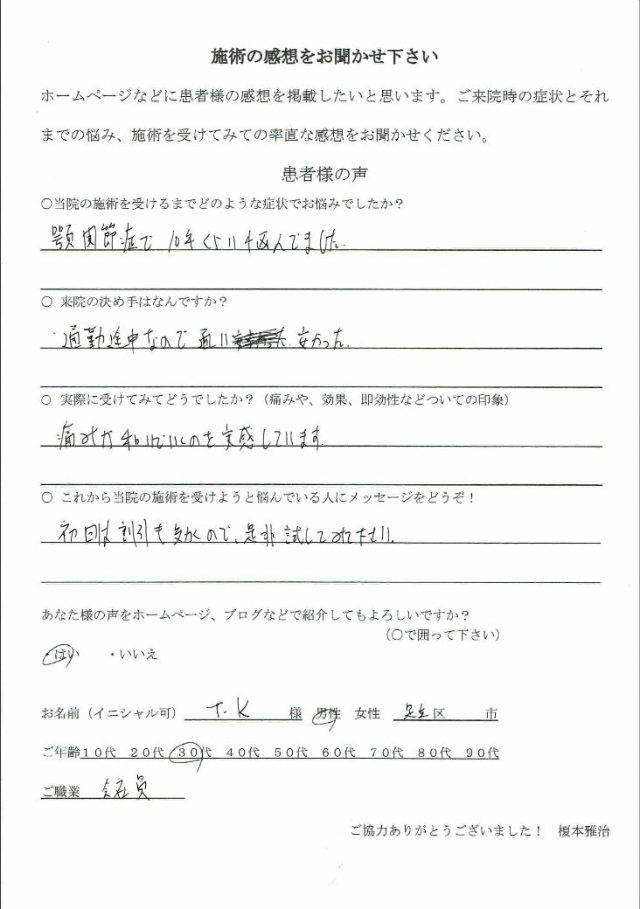 施術の感想をお聞かせ下さい
ホームページなどに患者様の感想を掲載したいと思います。ご来院時の症状とそれ
までの悩み、施術を受けてみての率直な感想をお聞かせください。
患者様の声
○当院の施術を受けるまでどのような症状でお悩みでしたか?
顎関節症で10年くらい悩んでました。
○ 来院の決め手はなんですか?
・通勤途中なので通い 安かった。
○ 実際に受けてみてどうでしたか?(痛みや、効果、即効性などついての印象)
痛みが和いでいくのを実感しています。
○ これから当院の施術を受けようと悩んでいる人にメッセージをどうぞ!
初回は割引も効くので、是非試してみて下さい。
あなた様の声をホームページ、ブログなどで紹介してもよろしいですか?
(○で囲って下さい)
・はい ・いいえ
お名前(イニシャル可) T.K 様 男性 女性 足立区 市
ご年齢10代 20代 30代 40代 50代 60代 70代 80代 90代
ご職業 会社員
ご協力ありがとうございました! 榎本雅治